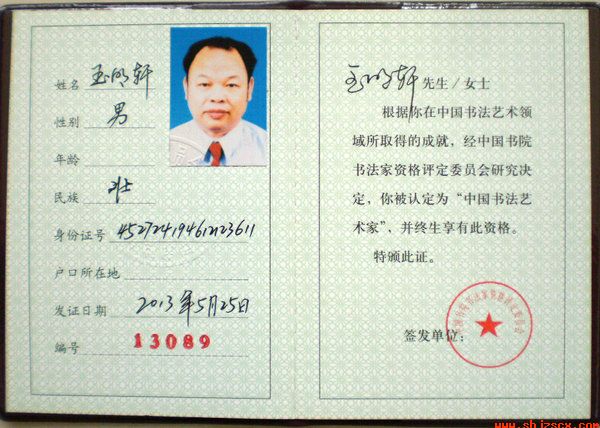 姓名 玉明轩
性别 男
年龄
民族 壮
身份证号 45272419461223611
户口所在地
发证日期 2013年5月25日
编号 13089
玉明轩 先生/女士
根据你在中国书法艺术领
域所取得的成就，经中国书院
书法家资格评定委员会研究决
定，你被认定为“中国书法艺
术家”，并终生享有此资格。
特颁此证。
签发单位：
中国书院书法家资格评定委员会
www.shjzscx.com